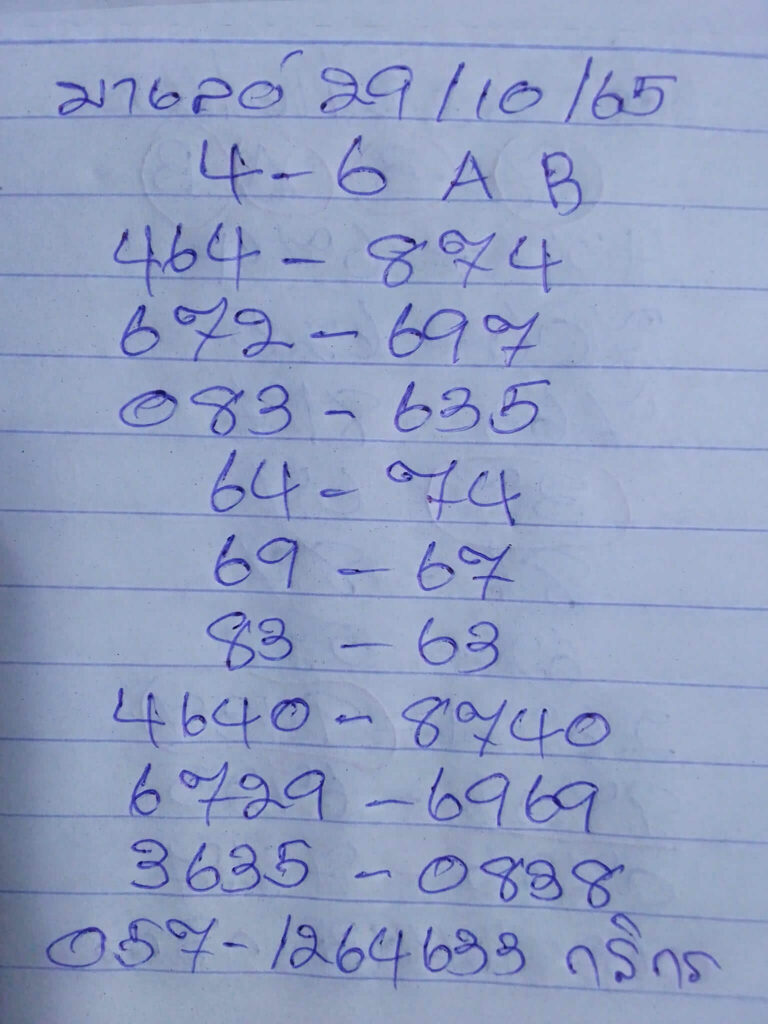 มาเลย์ 29/10/65
4-6 A B
464-874
672-697
083-635
64-74
69-67
83-63
4640-8740
6729-6969
3635-0838
057-1264633 กสิกร